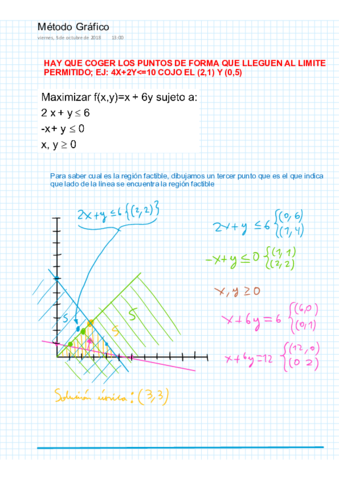 Método Gráfico
viernes, 5 de octubre de 2018 13:00
HAY QUE COGER LOS PUNTOS DE FORMA QUE LLEGUEN AL LIMITE
PERMITIDO; EJ: 4X+2Y<=10 COJO EL (2,1) Y (0,5)
Maximizar f(x,y)=x + 6y sujeto a:
2 x + y ≤ 6
-x+ y ≤ 0
x, y ≥ 0
Para saber cual es la región factible, dibujamos un tercer punto que es el que indica
que lado de la línea se encuentra la región factible
2x+y≤6 {(2,2)}
2x+y ≤ 6 {(0,6)
(1,4)
-x+y≤0 {(1,1)
(2,2)
x,y≥0
x+6y=6 {(6,0)
(0,1)
x+6y=12 {(12,0)
(0 2)
S
S
S
Solución única: (3,3)